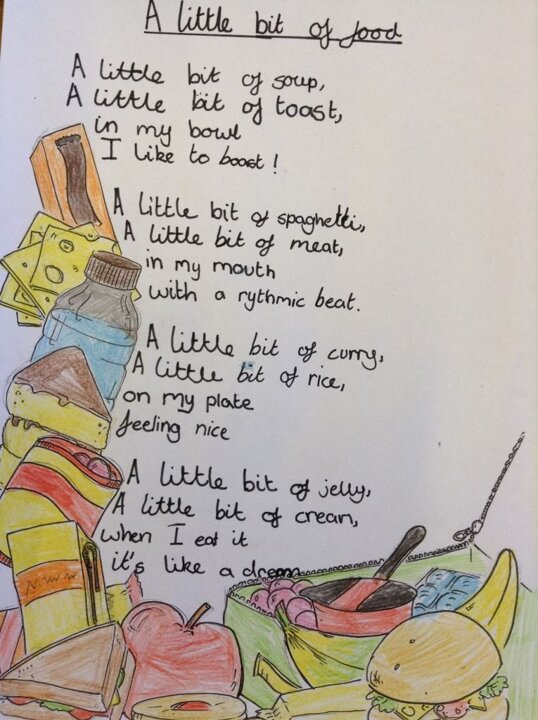 A little bit of food
A little bit of soup,
A little bit of toast,
in my bowl
I like to boast!
A little bit of spaghetti,
A little bit of meat,
in my mouth
with a rythmic beat.
A little bit of curry,
A little bit of rice,
on my plate
feeling nice
A little bit of jelly,
A little bit of cream,
when I eat it
it's like a dream